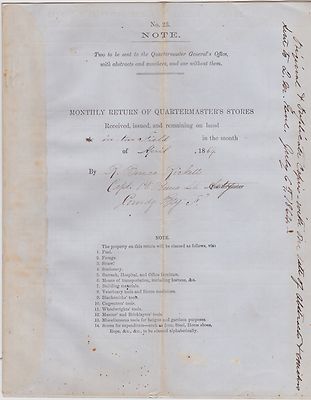 No. 23.
NOTE.
Two to be sent to the Quartermaster General's Office,
with abstracts and vouchers, and one without them.
MONTHLY RETURN OF QUARTERMASTER'S STORES
Received, issued, and remaining on hand
in the Field in the month
of April, 1864
By R. Bruce Ricketts
Capt. 1st Penna
NOTE.
The property on this return will be classed as follows, viz:
1. Fuel.
2. Forage.
3. Straw.
4. Stationery.
5. Barrack, Hospital, and Office furniture.
6. Means of transportation, including harness, &c.
7. Building materials.
8. Veterinary tools and Horse medicines.
9. Blacksmiths' tools.
10. Carpenters' tools.
11. Wheelwrights' tools.
12. Masons' and Bricklayers' tools.
13. Miscellaneous tools for fatigue and garrison purposes.
14. Stores for expenditure—such as Iron, Steel, Horse shoes,
Rope, &c., &c., to be classed alphabetically.
Original & Duplicate Copies with
Sent to July 6th 1864.